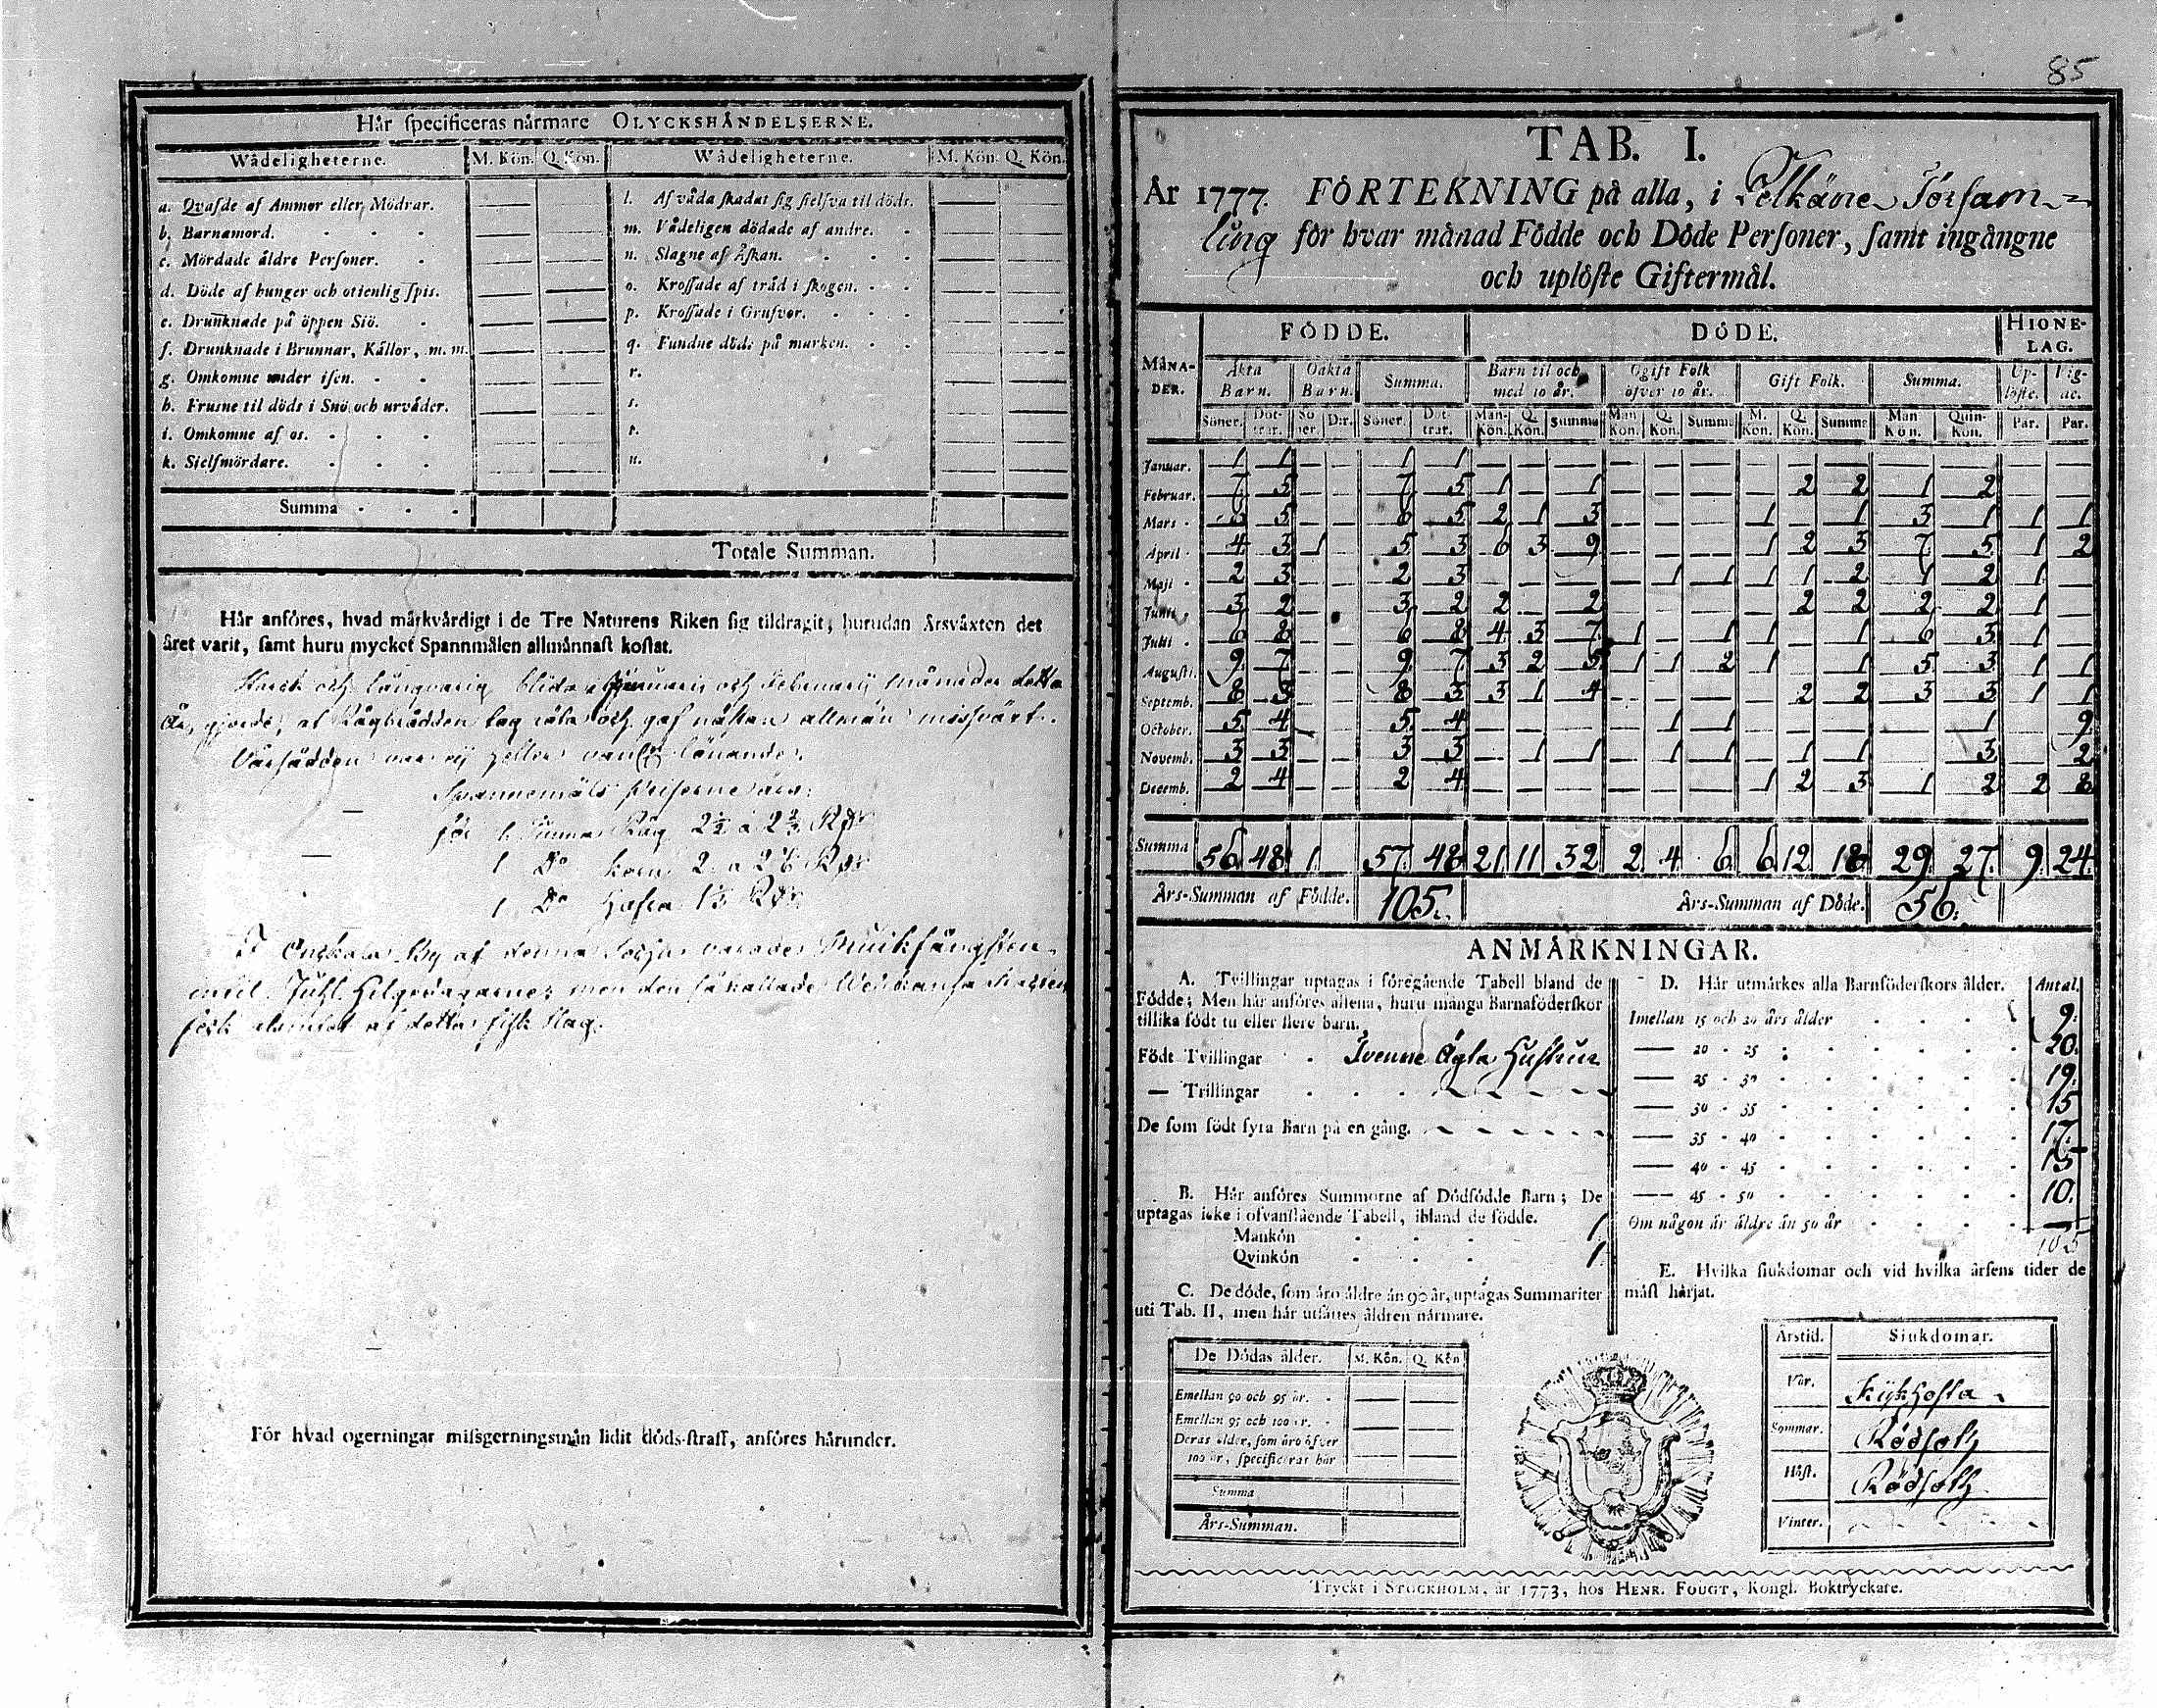 85
Här specificeras närmare OLYCKSHÄNDELSERNE.
Wådeligheterne. M. Kön. Q. Kön. Wådeligheterne. M. Kön. Q. Kön.
a. Qvafde af Ammor eller Mödrar. — — l. Af våda skadat sig sielfva til döds. — —
b. Barnamord. — — m. Vådeligen dödade af andre. — —
c. Mördade äldre Personer. — — n. Slagne af Åskan. — —
d. Döde af hunger och otienlig spis. — — o. Krossade af träd i skogen. — —
e. Drunknade på öppen Siö. — — p. Krossade i Grufvor. — —
f. Drunknade i Brunnar, Källor, m. m. — — q. Fundne döde på marken. — —
g. Omkomne under isen. — — r. — —
h. Frusne til döds i Snö och urväder. — — s. — —
i. Omkomne af os. — — t. — —
k. Sielfmördare. — — u. — —
Summa
Totale Summan.
Här anföres, hvad märkvärdigt i de Tre Naturens Riken sig tildragit, hurudan Årsväxten det
året varit, samt huru mycket Spannmålen allmännast kostat.
och långvarig blida i Januarii och Februarii månader detta
År, gjorde, at Rågbrådden tog röta och gaf nästan allmän missväxt.
Vårsäden var ej heller lönande.
Spannemåls Priserne äro:
för 1. Tunna Råg 2½ a 2⅔ Rdr
1 Do Korn 2. a Rdr
1 Do Hafra 1⅓ Rdr
I By af denna Sockn varade Muikfångsten
intil Juhl Helgedagarne; men den så kallade
af detta fisk slag.
För hvad ogerningar missgerningsmän lidit döds-straff, anföres härunder.
TAB. I.
År 1777. FÖRTEKNING på alla, i Pelkäne Församling
för hvar månad Födde och Döde Personer, samt ingångne
och uplöste Giftermål.
MÅNADER. FÖDDE. DÖDE. HIONELAG.
Äkta Barn. Oäkta Barn. Summa. Barn til och med 10 år. Ogift Folk öfver 10 år. Gift Folk. Summa. Uplöste. Vigde.
Söner. Döttrar. Söner. Dr. Söner. Döttrar. Man-Kön. Q. Kön. Summa Man Kön. Q. Kön. Summa M. Kön. Q. Kön. Summa Man Kön. Quin-Kön. Par. Par.
Januar. 1 1 — — 1 1 — — — — — — — — — — — — —
Februar. 7. 5 — — 7. 5 1 — 1 — — — — 2 2 1 2 — —
Mars 6 5 — — 6 5 2 1 3 — — — 1 — 1 3 1 1 1
April 4 3 1 — 5 3 6 3 9 — — — 1 2 3 7. 5 1 2
Maji 2 3 — — 2 3 — — — — 1 1 1 1 2 1 2 1 —
Junii 3 2 — — 3 2 2 — 2 — — — — 2 2 2 2 1 —
Julii 6 8 — — 6 8 4 3 7. 1 — 1 1 — 1 6 3 1 —
Augusti. 9. 7 — — 9. 7 3 2 5 1 1 2 1 — 1 5 3 1 1
Septemb. 8 3 — — 8 3 3 1 4 — — — — 2 2 3 3 1 1
October. 5 4 — — 5 4 — — — — 1 1 — — — — 1 — 9.
Novemb. 3 3 — — 3 3 — 1 1 — 1 1 — 1 1 — 3 — 2
Decemb. 2 4 — — 2 4 — — — — — — 1 2 3 1 2 2 8
Summa 56 48 1 57. 48 21 11 32 2 4 6 6 12 18 29 27. 9. 24.
Års-Summan af Födde. 105. Års-Summan af Döde. 56.
ANMÄRKNINGAR.
A. Tvillingar uptagas i föregående Tabell bland de
Födde; Men här anföres allena, huru många Barnaföderskor
tillika födt tu eller flere barn.
Födt Tvillingar Tvenne Ägta Hustrur
— Trillingar
De som födt fyra Barn på en gång.
B. Här anföres Summorne af Dödfödde Barn; De
uptagas icke i ofvanstående Tabell, ibland de födde.
Mankön 1
Qvinkön 1
C. De döde, som äro äldre än 90 år, uptagas Summariter
uti Tab. II, men här utsättes åldren närmare.
De Dödas ålder. M. Kön. Q. Kön
Emellan 90 och 95 år. — —
Emellan 95 och 100 år. — —
Deras ålder, som äro öfver
100 år, specificeras här — —
Summa
Års-Summan.
D. Här utmärkes alla Barnföderskors ålder. Antal.
Imellan 15 och 20 års ålder 9.
— 20 - 25 20.
— 25 - 30 19.
— 30 - 35 15
— 35 - 40 17.
— 40 - 45 15
— 45 - 50 10.
Om någon är äldre än 50 år —
105
E. Hvilka siukdomar och vid hvilka årsens tider de
mäst härjat.
Årstid. Siukdomar.
Vår. Kikhosta
Sommar. Rödsoth
Höst. Rödsoth
Vinter.
Tryckt i STOCKHOLM, år 1773, hos HENR. FOUGT, Kongl. Boktryckare.